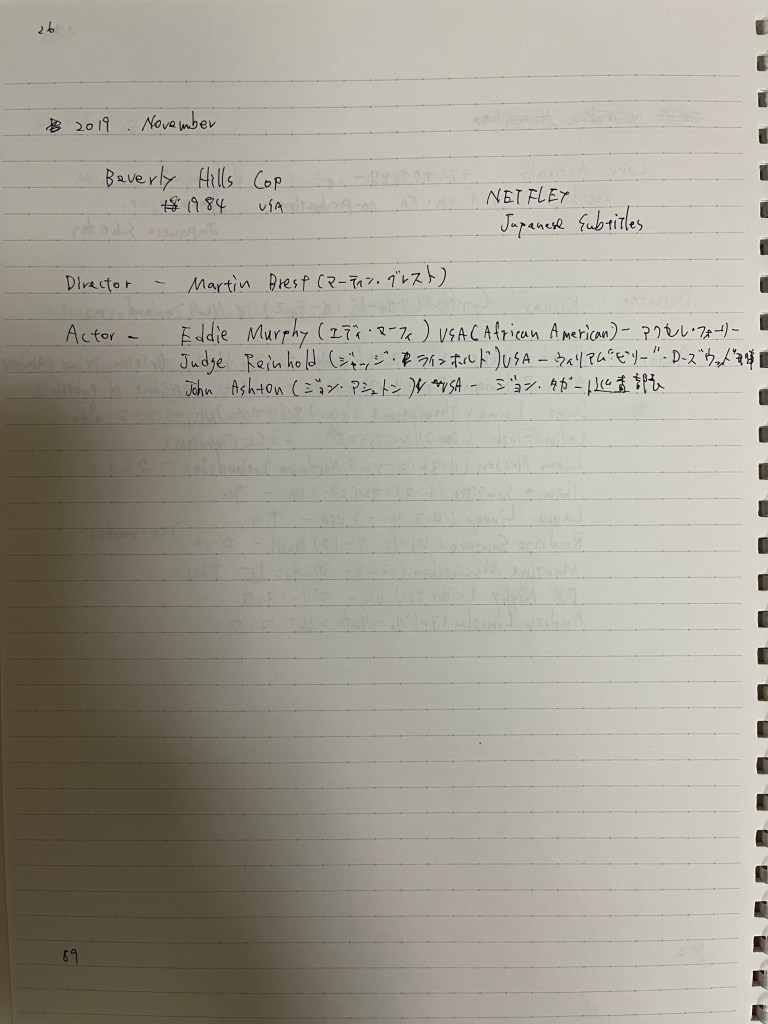 26
2019. November
Beverly Hills Cop
1984 USA
NETFLEX
Japanese Subtitles
Director - Martin Brest (マーティン・ブレスト)
Actor - Eddie Murphy (エディ・マーフィ) USA (African American) - アクセル・フォーリー
Judge Reinhold (ジャッジ・ラインホルド) USA - ウィリアム"ビリー"・ローズウッド
John Ashton (ジョン・アシュトン) USA - ジョン・タガート巡査部長
59